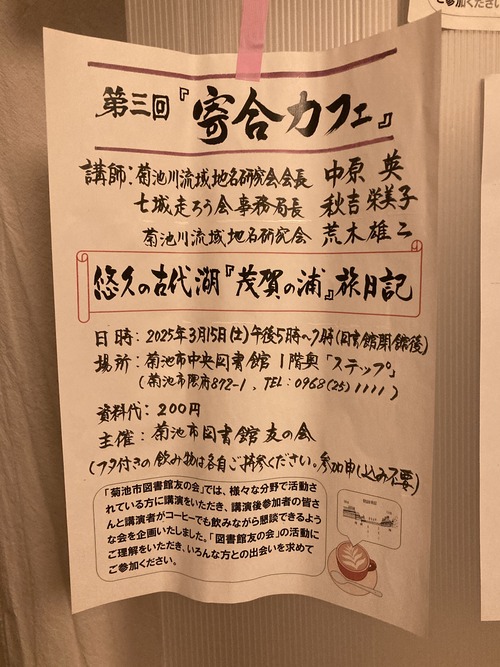 ご参加ください
第三回『寄合カフェ』
講師：菊池川流域地名研究会会長 中原 英
七城走ろう会事務局長 秋吉 栄美子
菊池川流域地名研究会 荒木雄二
悠久の古代湖『茂賀の浦』旅日記
日時：2025年3月15日(土)午後5時〜7時(図書館閉館後)
場所：菊池市中央図書館 1階奥「ステップ」
(菊池市隈府872-1，TEL：0968(25)1111)
資料代：200円
主催：菊池市図書館 友の会
(フタ付きの飲み物は各自ご持参ください。参加申し込み不要)
「菊池市図書館友の会」では、様々な分野で活動さ
れている方に講演をいただき、講演後参加者の皆さ
んと講演者がコーヒーでも飲みながら懇談できるよう
な会を企画いたしました。「図書館友の会」の活動に
ご理解をいただき、いろんな方との出会いを求めて
ご参加ください。